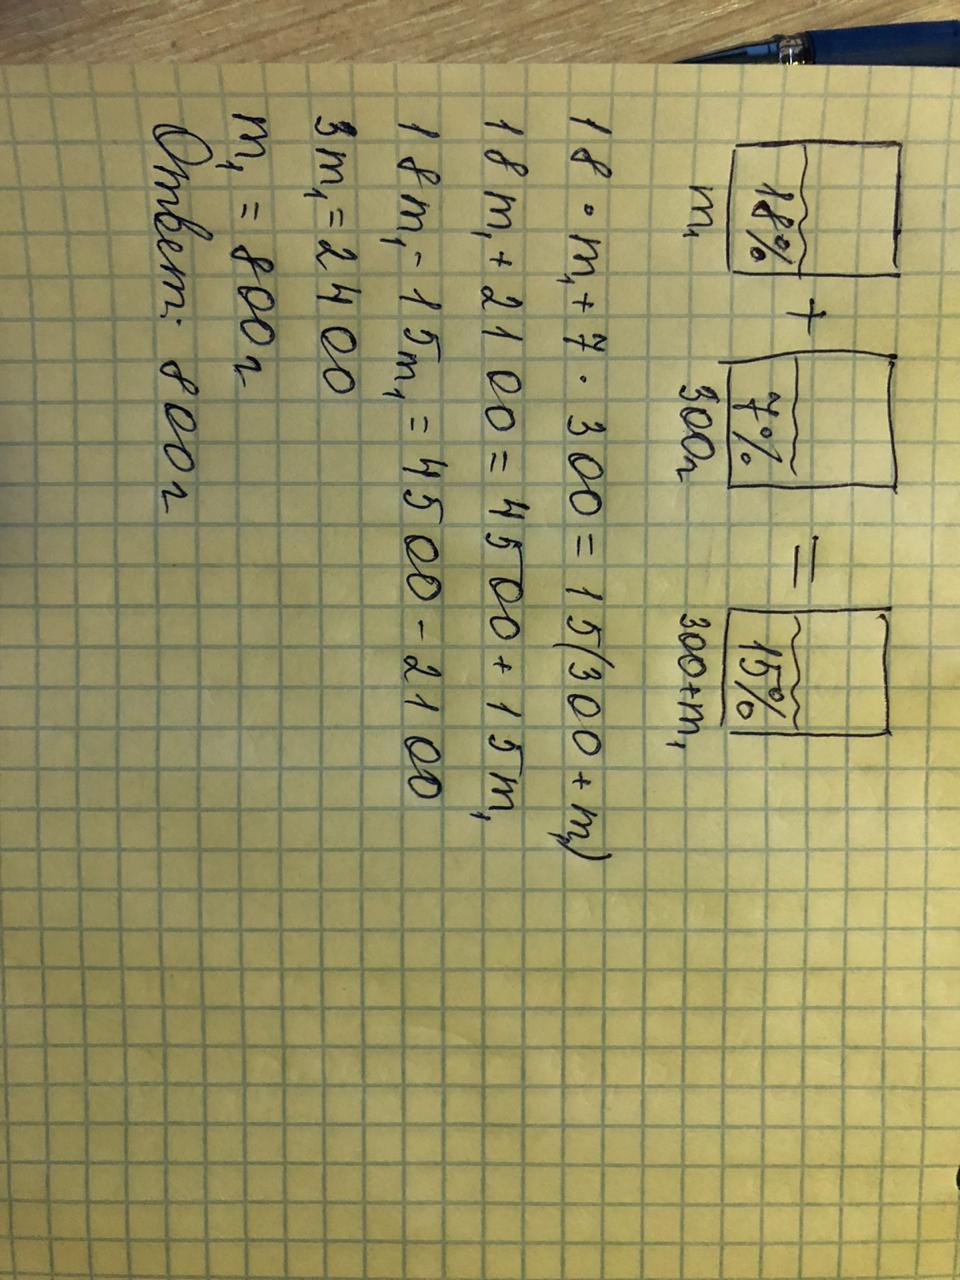 18% + 7% = 15%
m₁ 300г 300+m₁
18 · m₁ + 7 · 300 = 15(300 + m₁)
18m₁ + 2100 = 4500 + 15m₁
18m₁ - 15m₁ = 4500 - 2100
3m₁ = 2400
m₁ = 800г
Ответ: 800г